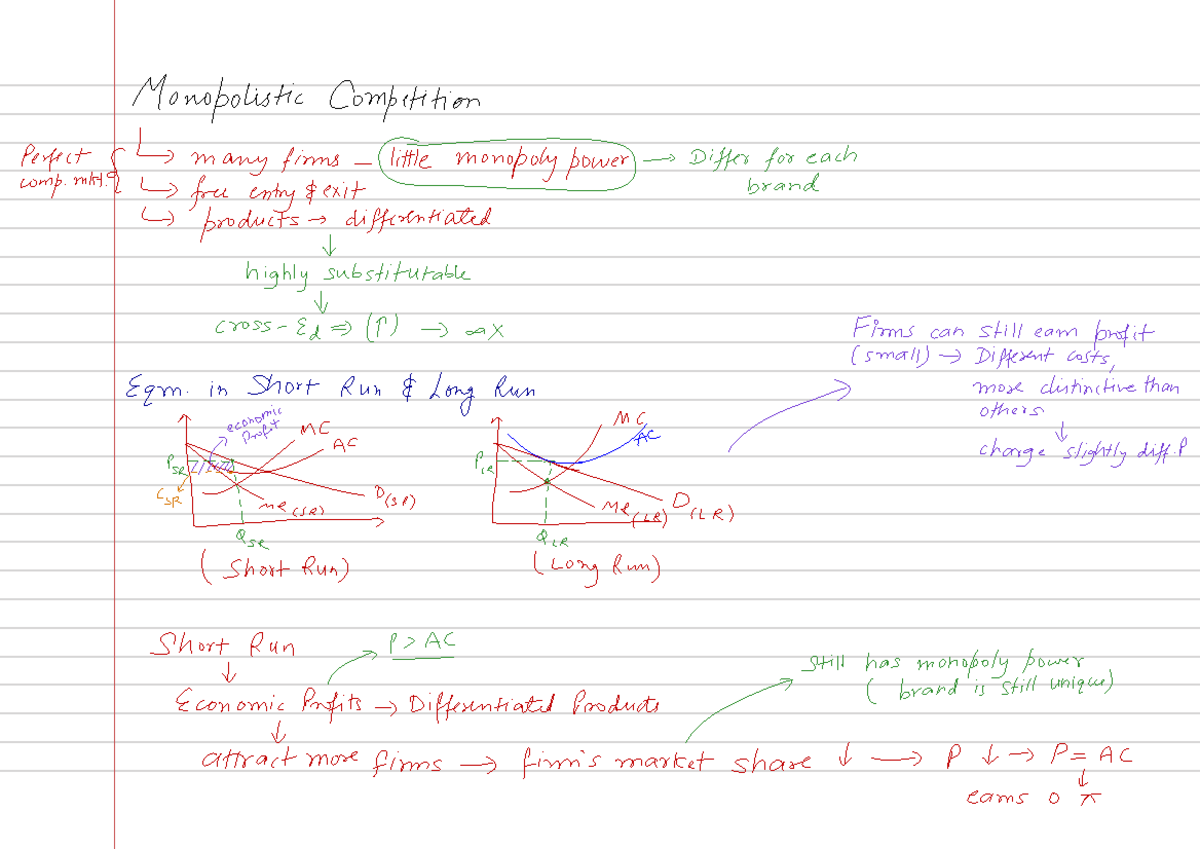 Monopolistic Competition
Perfect comp. mkt. { ↳ many firms – little monopoly power → Differ for each brand
↳ free entry & exit
↳ products → differentiated
↓
highly substitutable
↓
cross - Ed ⇒ (↑) → ∞ X
Firms can still earn profit
(small) → Different costs,
more distinctive than
others
↓
charge slightly diff. P
Eqm. in Short Run & Long Run
economic
Profit
MC
AC
P_SR
C_SR
D(SR)
MR(SR)
Q_SR
(Short Run)
MC
AC
P_LR
D(LR)
MR(LR)
Q_LR
(Long Run)
Short Run
P > AC
↓
Still has monopoly power
(brand is still unique)
Economic Profits → Differentiated Products
↓
attract more firms → firm's market share ↓ → P ↓ → P = AC
↓
earns 0 π